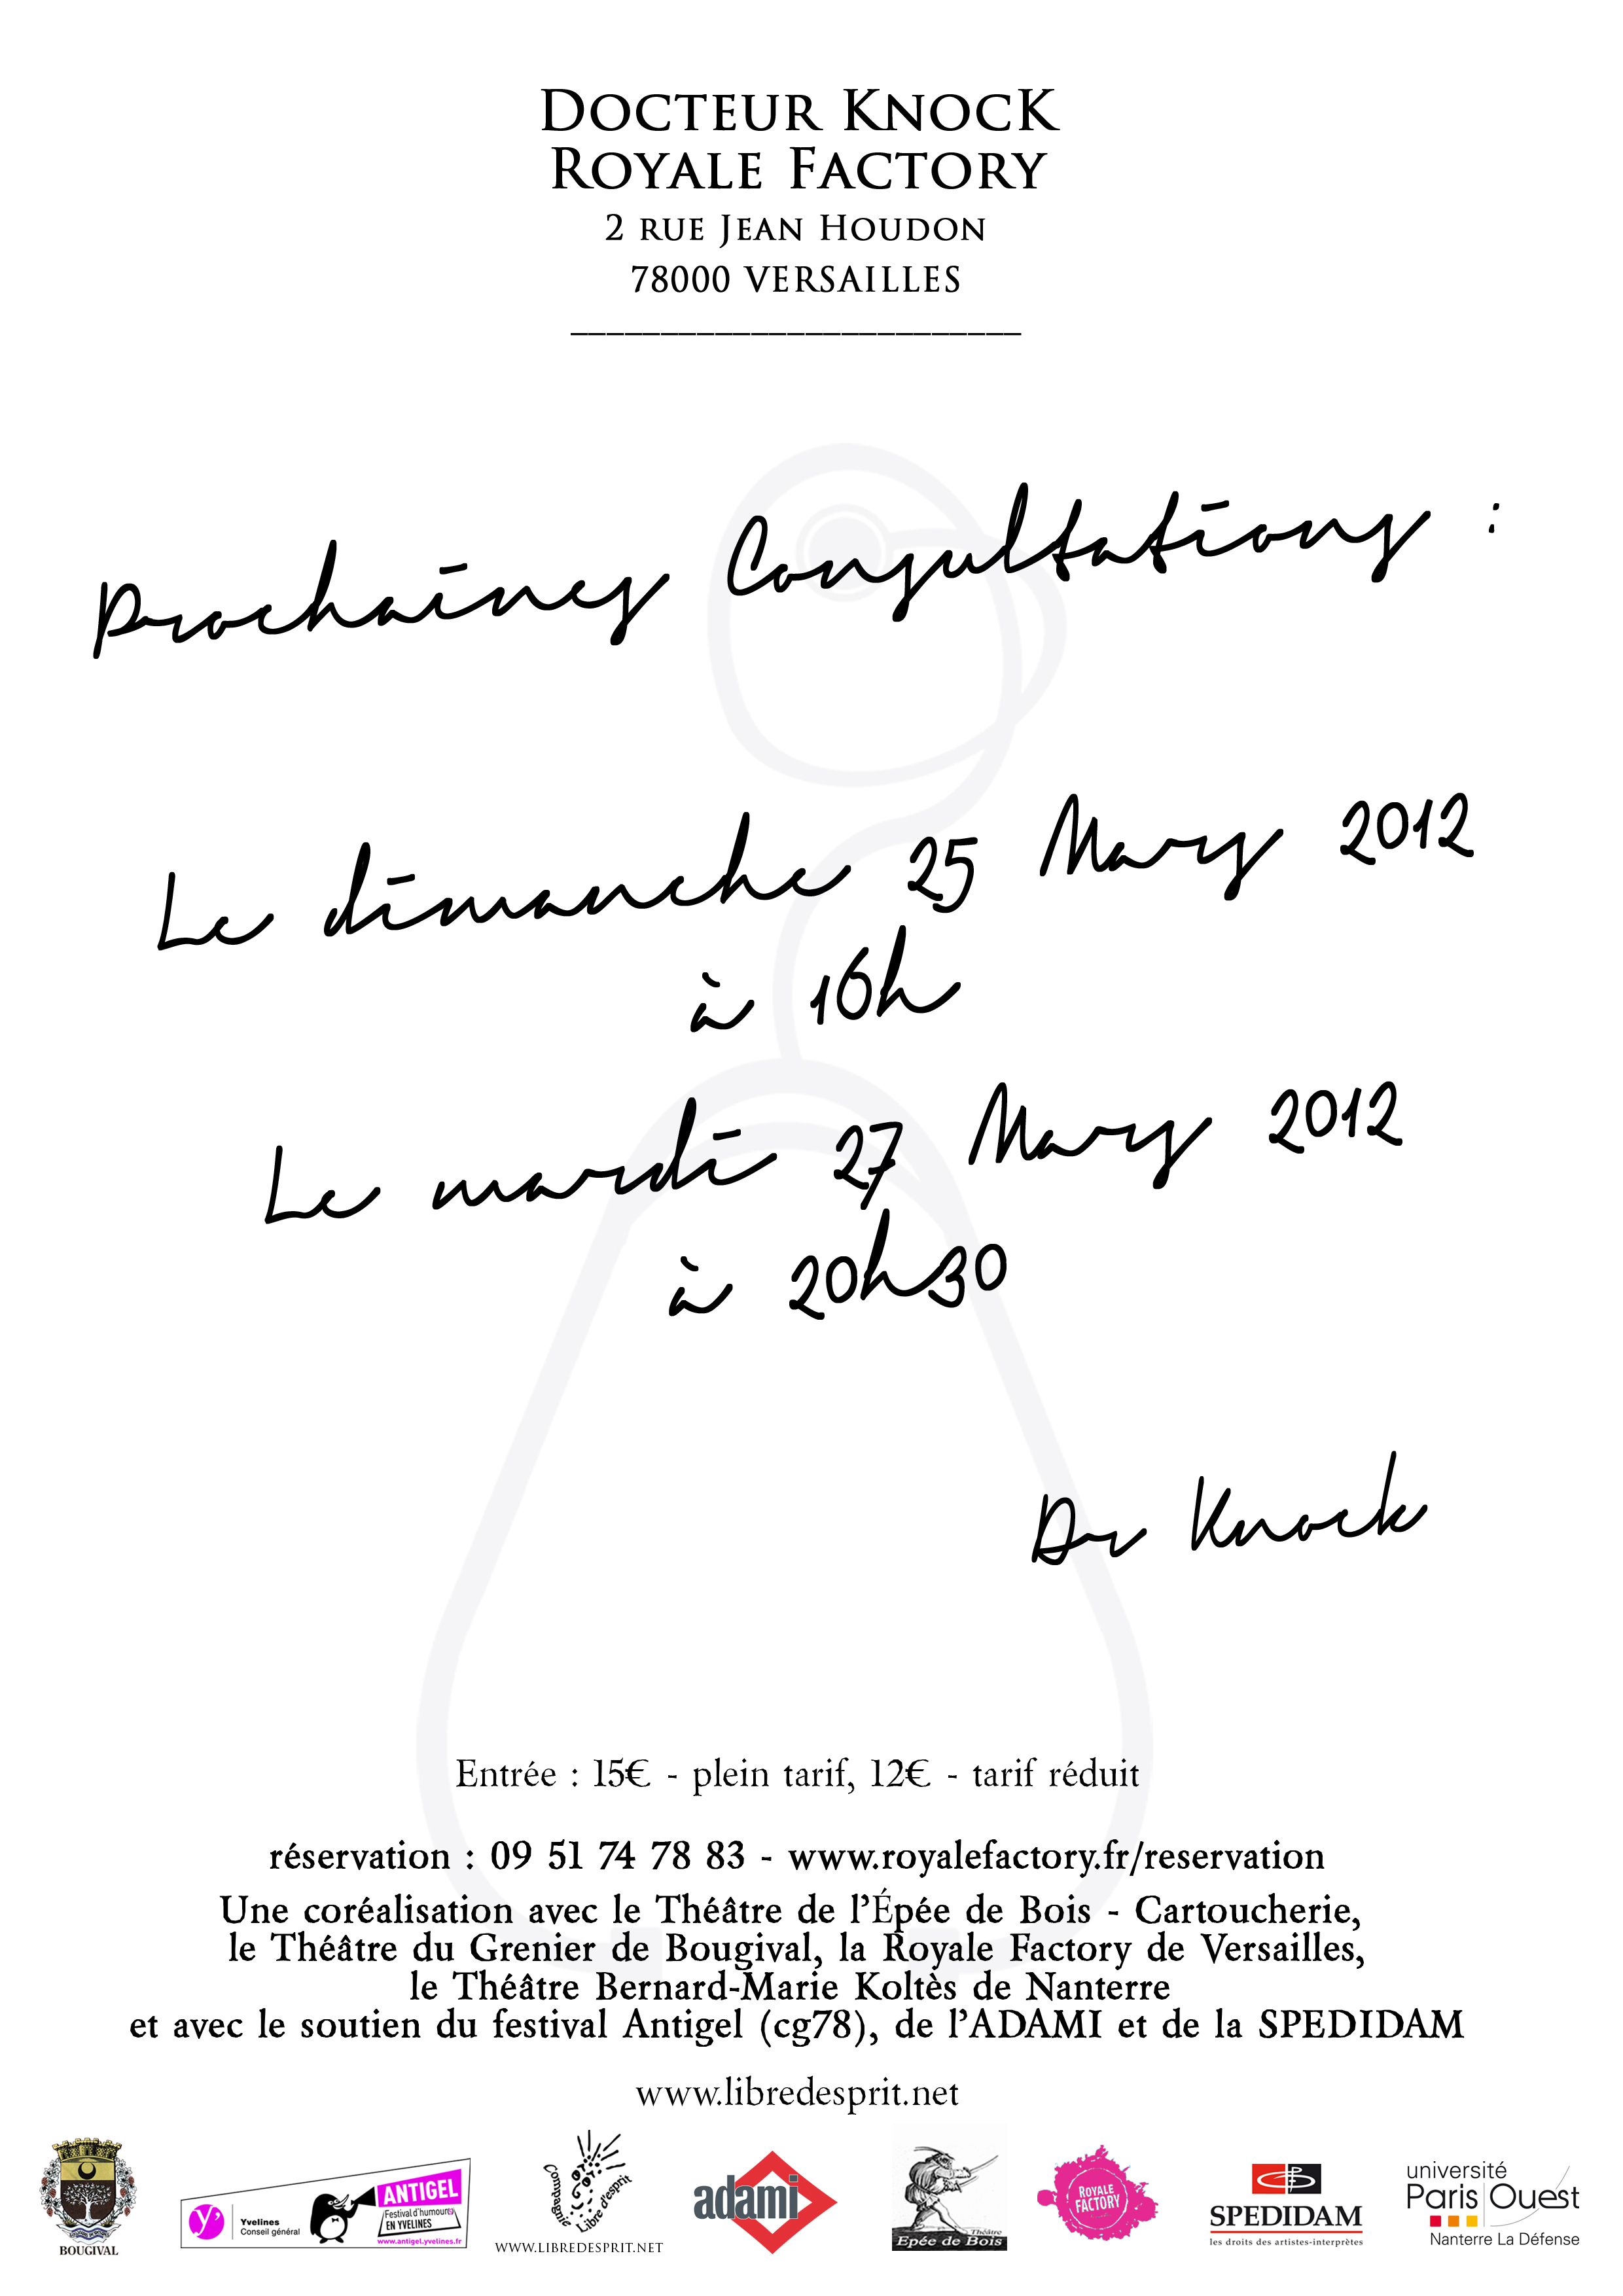 Docteur Knock
Royale Factory
2 rue Jean Houdon
78000 VERSAILLES
Prochaines Consultations :
Le dimanche 25 Mars 2012
à 16h
Le mardi 27 Mars 2012
à 20h30
Dr Knock
Entrée : 15€ - plein tarif, 12€ - tarif réduit
réservation : 09 51 74 78 83 - www.royalefactory.fr/reservation
Une coréalisation avec le Théâtre de l'Épée de Bois - Cartoucherie,
le Théâtre du Grenier de Bougival, la Royale Factory de Versailles,
le Théâtre Bernard-Marie Koltès de Nanterre
et avec le soutien du festival Antigel (cg78), de l'ADAMI et de la SPEDIDAM
www.libredesprit.net
BOUGIVAL
Yvelines
Conseil général
ANTIGEL
Festival d'humours
EN YVELINES
www.antigel.yvelines.fr
Compagnie Libre d'esprit
WWW.LIBREDESPRIT.NET
adami
Théâtre
Epée de Bois
ROYALE
FACTORY
SPEDIDAM
les droits des artistes-interprètes
université
Paris Ouest
Nanterre La Défense